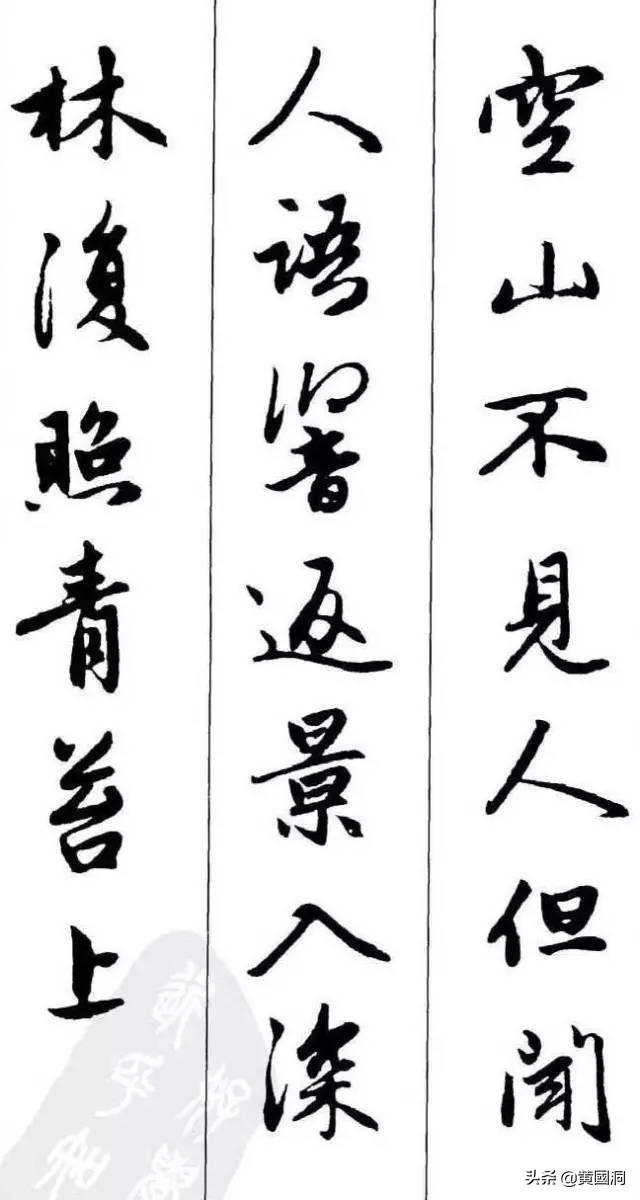 空山不見人但聞
人語響返景入深
林復照青苔上
头条 @黄國洞